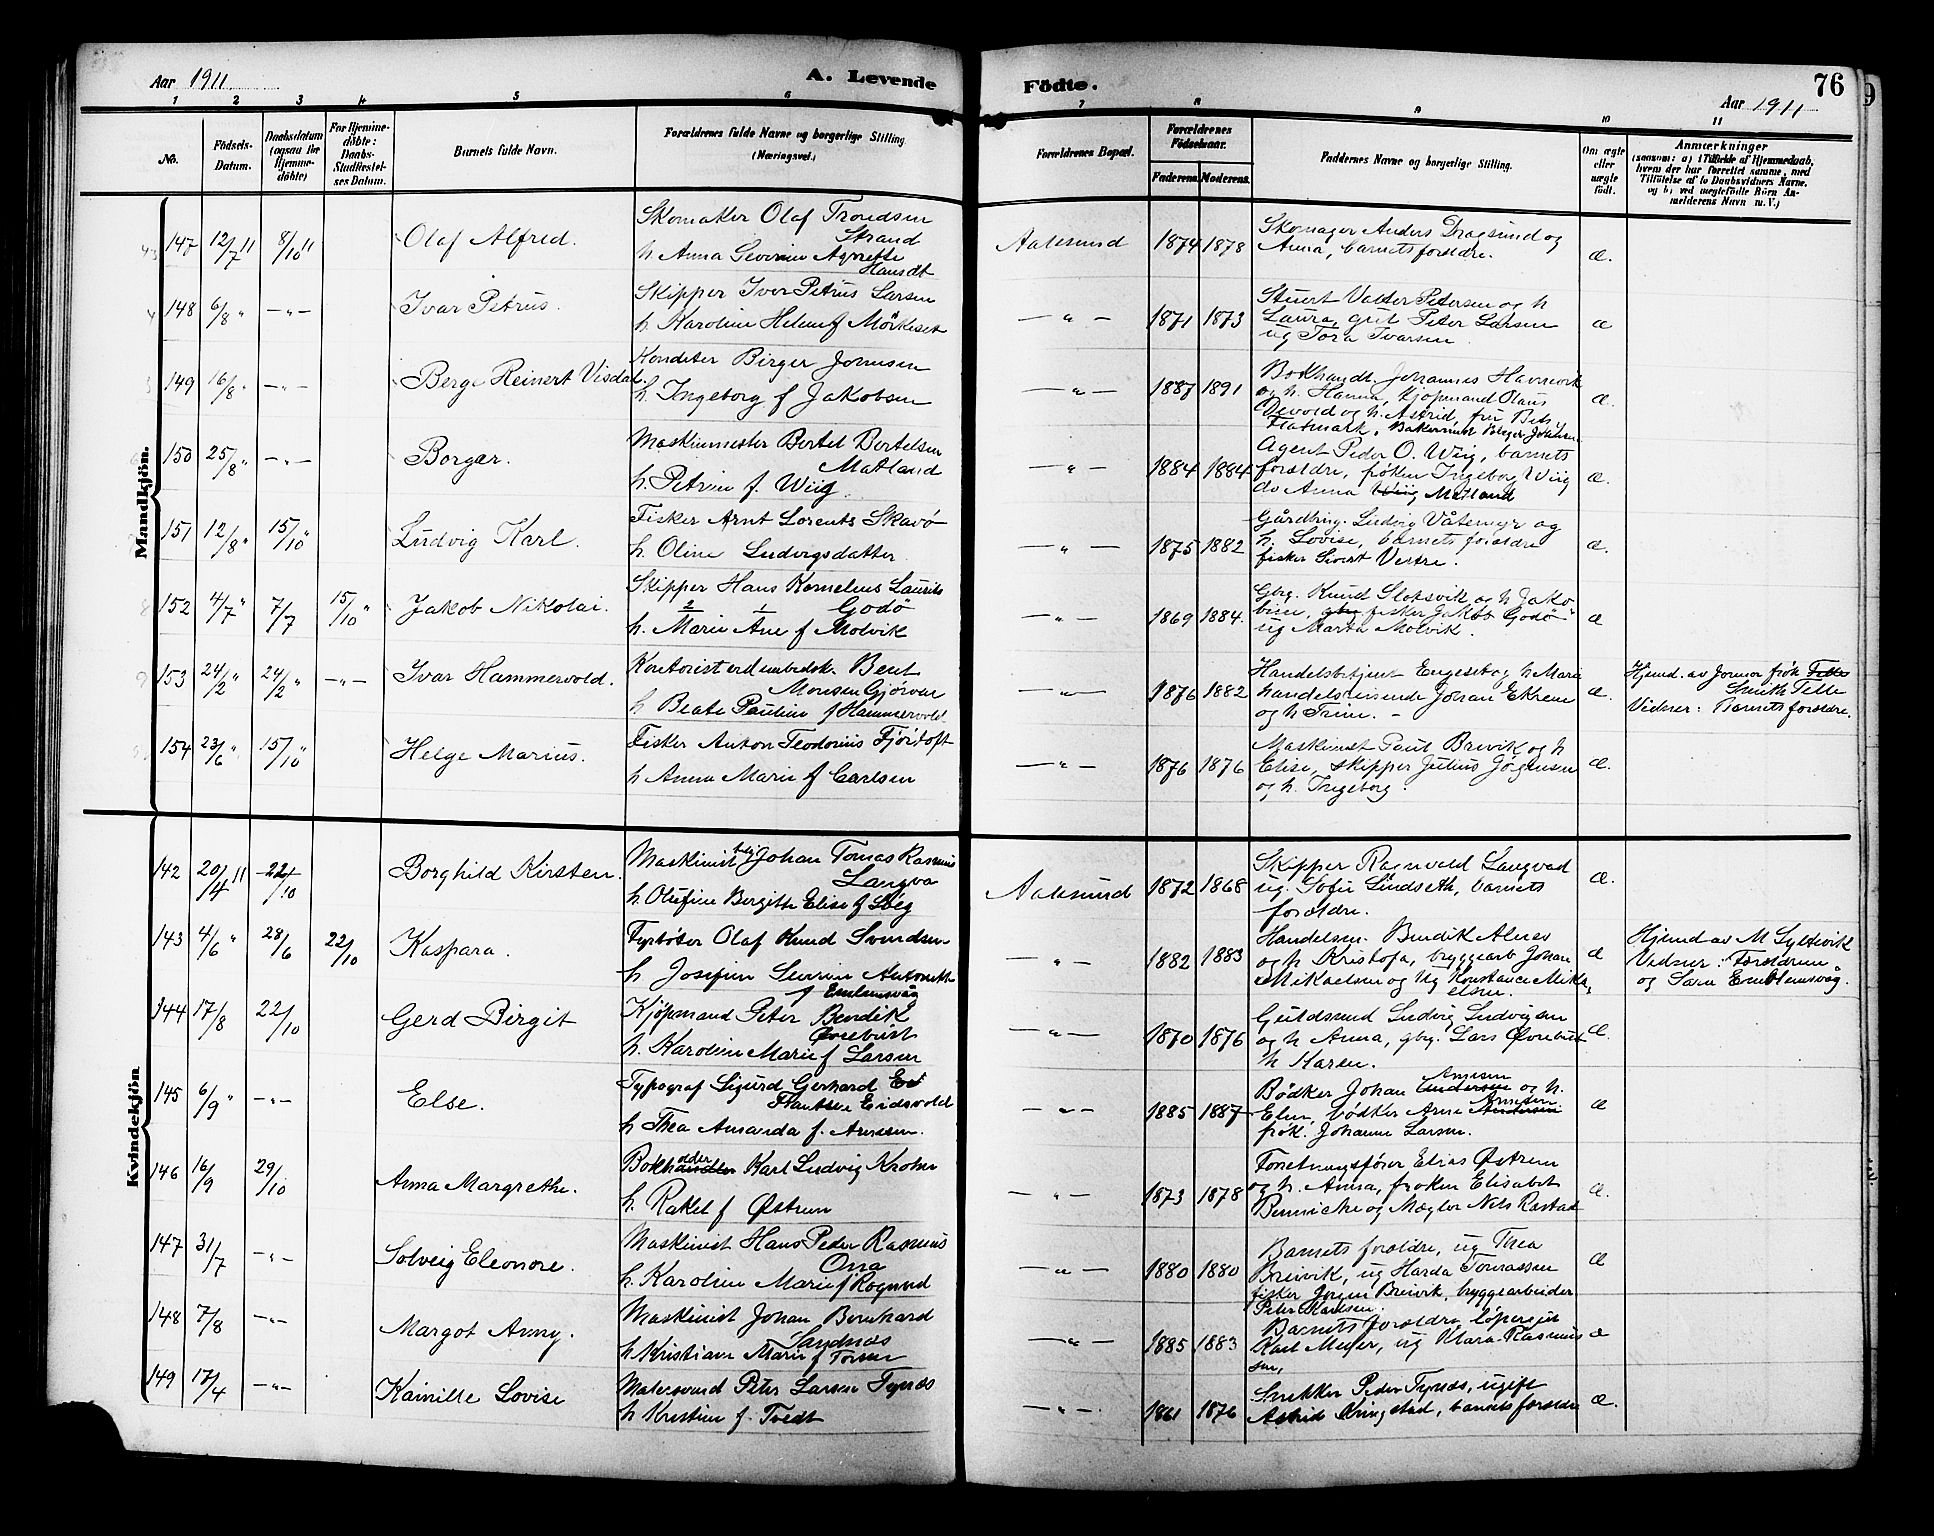 Aar 1911
A. Levende Födte.
76
Aar 1911
1 2 3 4 5 6 7 8 9 10 11
No.
Födsels-Datum.
Daabsdatum (ogsaa for Hjemme-döbte)
For Hjemme-döbte: Daabs-Stadfæstel-ses Datum.
Barnets fulde Navn.
Forældrenes fulde Navne og borgerlige Stilling (Næringsvei.)
Forældrenes Bopæl.
Forældrenes Födselsaar.
Faderens. Moderens.
Faddernes Navne og borgerlige Stilling.
Om ægte eller uægte födt.
Anmærkninger
(saasom: a) i Tilfælde af Hjemmedaab,
hvem der har forrettet samme, med
Tilföielse af to Daabsvidners Navne,
og b) ved uegtefödte Börn An-
melderens Navn m. V.)
Mandkjön.
147 12/7 11 8/10 11 Olaf Alfred.
Skomaker Olaf Trondsen
Strand
h. Anna Severine Agnette
Hansdt
Aalesund 1874 1878
Skomager Anders Dragsund og
Anna, barnets forældre.
æ.
148 6/8 " —"— Ivar Petrus.
Skipper Iver Petrus Larsen
h. Karoline Helene f Mörkeset
—"— 1871 1873
Stuert Valter Petersen og h
Laura, gret Peter Larsen
ug Tora Ivarsen
æ
149 16/8 " —"— Berge Reinert Visdal.
Konditer Birger Jonssen
h. Ingeborg f Jakobsen
—"— 1887 1891
Bokhandl. Johannes Havnevik
og h. Hanna, Kjöpmand Olaus
Devold og h. Astrid, fru Betsy
æ.
150 25/8 " —"— Borger.
Maskinmester Bertel Bertelsen
Matland
h. Petrine f. Wiig.
—"— 1884 1884
Agent Peder O. Wiig, barnets
forældre, fröken Ingeborg Wiig
do Anna Wiig Matland
æ.
151 12/8 " 15/10 " Ludvig Karl.
Fisker Arnt Lorents Skavö
h. Oline Ludvigsdatter
—"— 1875 1882
Gårdbrug. Ludvig Våtemyr og
h. Lovise, barnets forældre
fisker Sivert Vestre.
æ.
152 4/7 " 7/7 15/10 " Jakob Nikolai.
Skipper Hans Kornelius Laurits
2 1 Godö
h. Marie Ane f Molvik
—"— 1869 1884.
Gbg. Knud Slotsvik og h Jako-
bine, gbg fisker Jakob Godö
ug Marta Molvik.
æ
153 24/2 " 24/2 " —"— Ivar Hammervold.
Kontorist Bent
Monsen Gjörvar
h Beate Pauline f Hammervold
—"— 1876 1882
Handelsbetjent Engeset og h Marie
handelsreisende Johan Ekrem
og h Trine. —
æ
Hjemd. av Jormor frök Telle
Smith Telle
Vidner: Barnets forældre.
154 23/6 " 15/10 " Helge Marius.
Fisker Anton Teodorius Fjörtoft
h Anna Marie f Carlsen
—"— 1876 1876
Maskinist Paul Breivik og h
Elise, skipper Julius Jörgensen
og h. Ingeborg.
æ.
Kvindekjön
142 20/4 11 22/10 Borghild Kirsten.
Maskinist Johan Tomas Rasmus
Langva
h Olufine Bergitte Elise f Solg
Aalesund 1872 1868
Skipper Ragnvald Langvad
ug. Sofie Lindseth, barnets
forældre.
æ.
143 4/6 " 28/6 22/10 Kaspara.
Fyrböter Olaf Knud Svendsen
h Josefine Severine Antonette
f Emlemsvåg
—"— 1882 1883
Handelsm. Bendik Alnes
og h Kristofa, byggearb Johan
Mikaelsen og ug Konstance Mika-
elsen.
æ
Hjemd av M Syltevik
Vidner: Forældrene
og Sara Emblemsvåg.
144 17/8 22/10 Gerd Birgit
Kjöpmand Peter Bendik
Øvrebust
h. Karoline Marie f Larsen
—"— 1870 1876
Guldsmed Ludvig Ludvigsen
og h Anna, gbg. Lars Øvrebust
h Karen.
æ.
145 6/9 " —"— Else.
Typograf Sigurd Gerhard
Frantsen Eidsvold
h Thea Amanda f. Arnesen.
—"— 1885 1887
Bödker Johan Andersen Arnesen og h.
Elen, bödker Arne Andersen Arnesen
frök. Johanne Larsen.
æ
146 16/9 29/10 Anna Margrethe.
Bokholder Karl Ludvig Krohn
h. Rakel f Østrem
—"— 1873 1878
Forretningsförer Elias Østrem
og h. Anna, fröken Elisabet
Benniche og Mægler Nils Rastad
æ.
147 31/7 —"— Solveig Eleonore.
Maskinist Hans Peder Rasmus
Ona
h. Karoline Marie f Rogned
—"— 1880 1880
Barnets forældre, ug Thea
Breivik, ug Harda Tomassen
fisker Jörgen Breivik, byggearbeider
Peter Karlsen.
æ
148 7/8 —"— Margot Anny.
Maskinist Johan Bernhard
Sandnæs
h Kristiane Marie f Torsen
—"— 1885 1883
Barnets forældre, löpersjef
Karl Meyer, ug Klara Rasmus
sen,
æ
149 17/4 —"— Kamille Lovise
Malersvend Peter Larsen Tynæs
h Kristine f. Tvedt
—"— 1861 1876
Snekker Peder Tynæs, ugift
Astrid Ringstad, barnets forældre
æ.